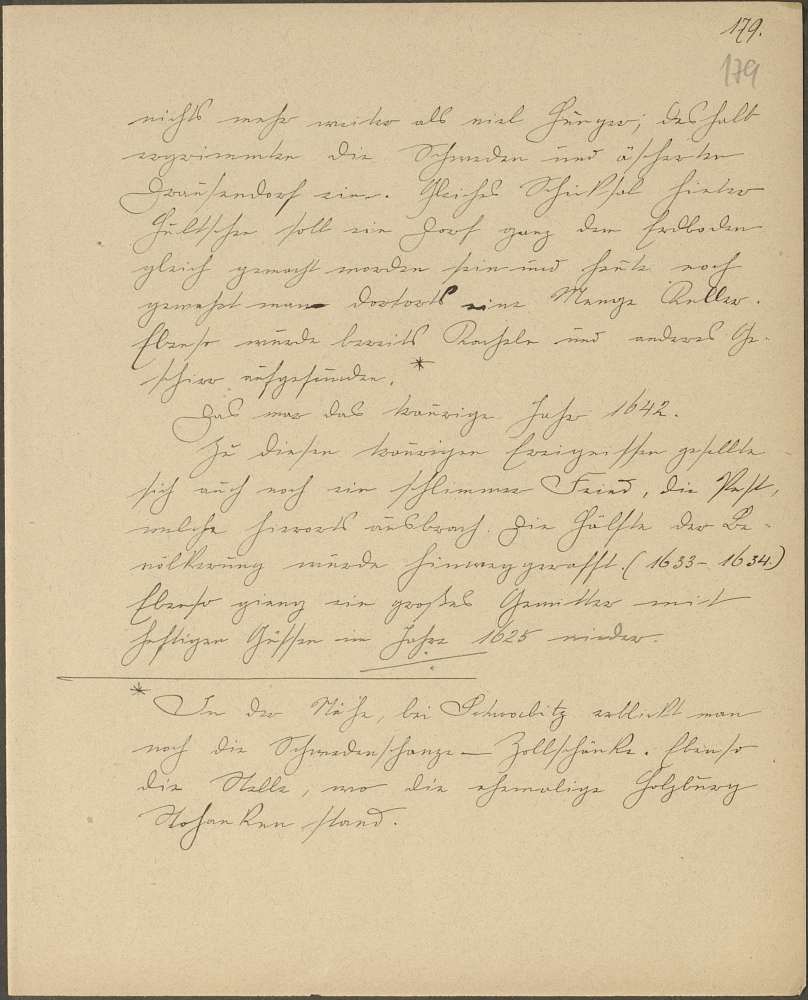 179.
179
nichts mehr weiter als viel Hunger; deshalb
ergrimmten die Schweden und äscherten
Drausendorf ein. Gleiches Schicksal hinter
Hultschen soll ein Dorf ganz dem Erdboden
gleich gemacht worden sein und heute noch
gewahrt man dortorts eine Menge Keller.
Ebenso wurde bereits Kacheln und anderes Ge-
schirr aufgefunden. *
Das war das traurige Jahr 1642.
Zu diesen traurigen Ereignissen gesellte
sich auch noch ein schlimmer Feind, die Pest,
welche hierorts ausbrach. Die Hälfte der Be-
völkerung wurde hinweggerafft. (1633-1634.)
Ebenso gieng ein großes Gewitter mit
heftigen Güssen im Jahre 1625 nieder.
* In der Nähe, bei Schwabitz erblickt man
noch die Schwedenschanze - Zollschänke. Ebenso
die Stelle, wo die ehemalige Holzburg
Stohanken stand.